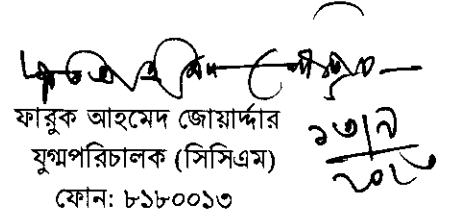 ফারুক আহমেদ জোয়ার্দ্দার
যুগ্মপরিচালক (সিসিএম)
ফোন: ৮১৮০০১৩